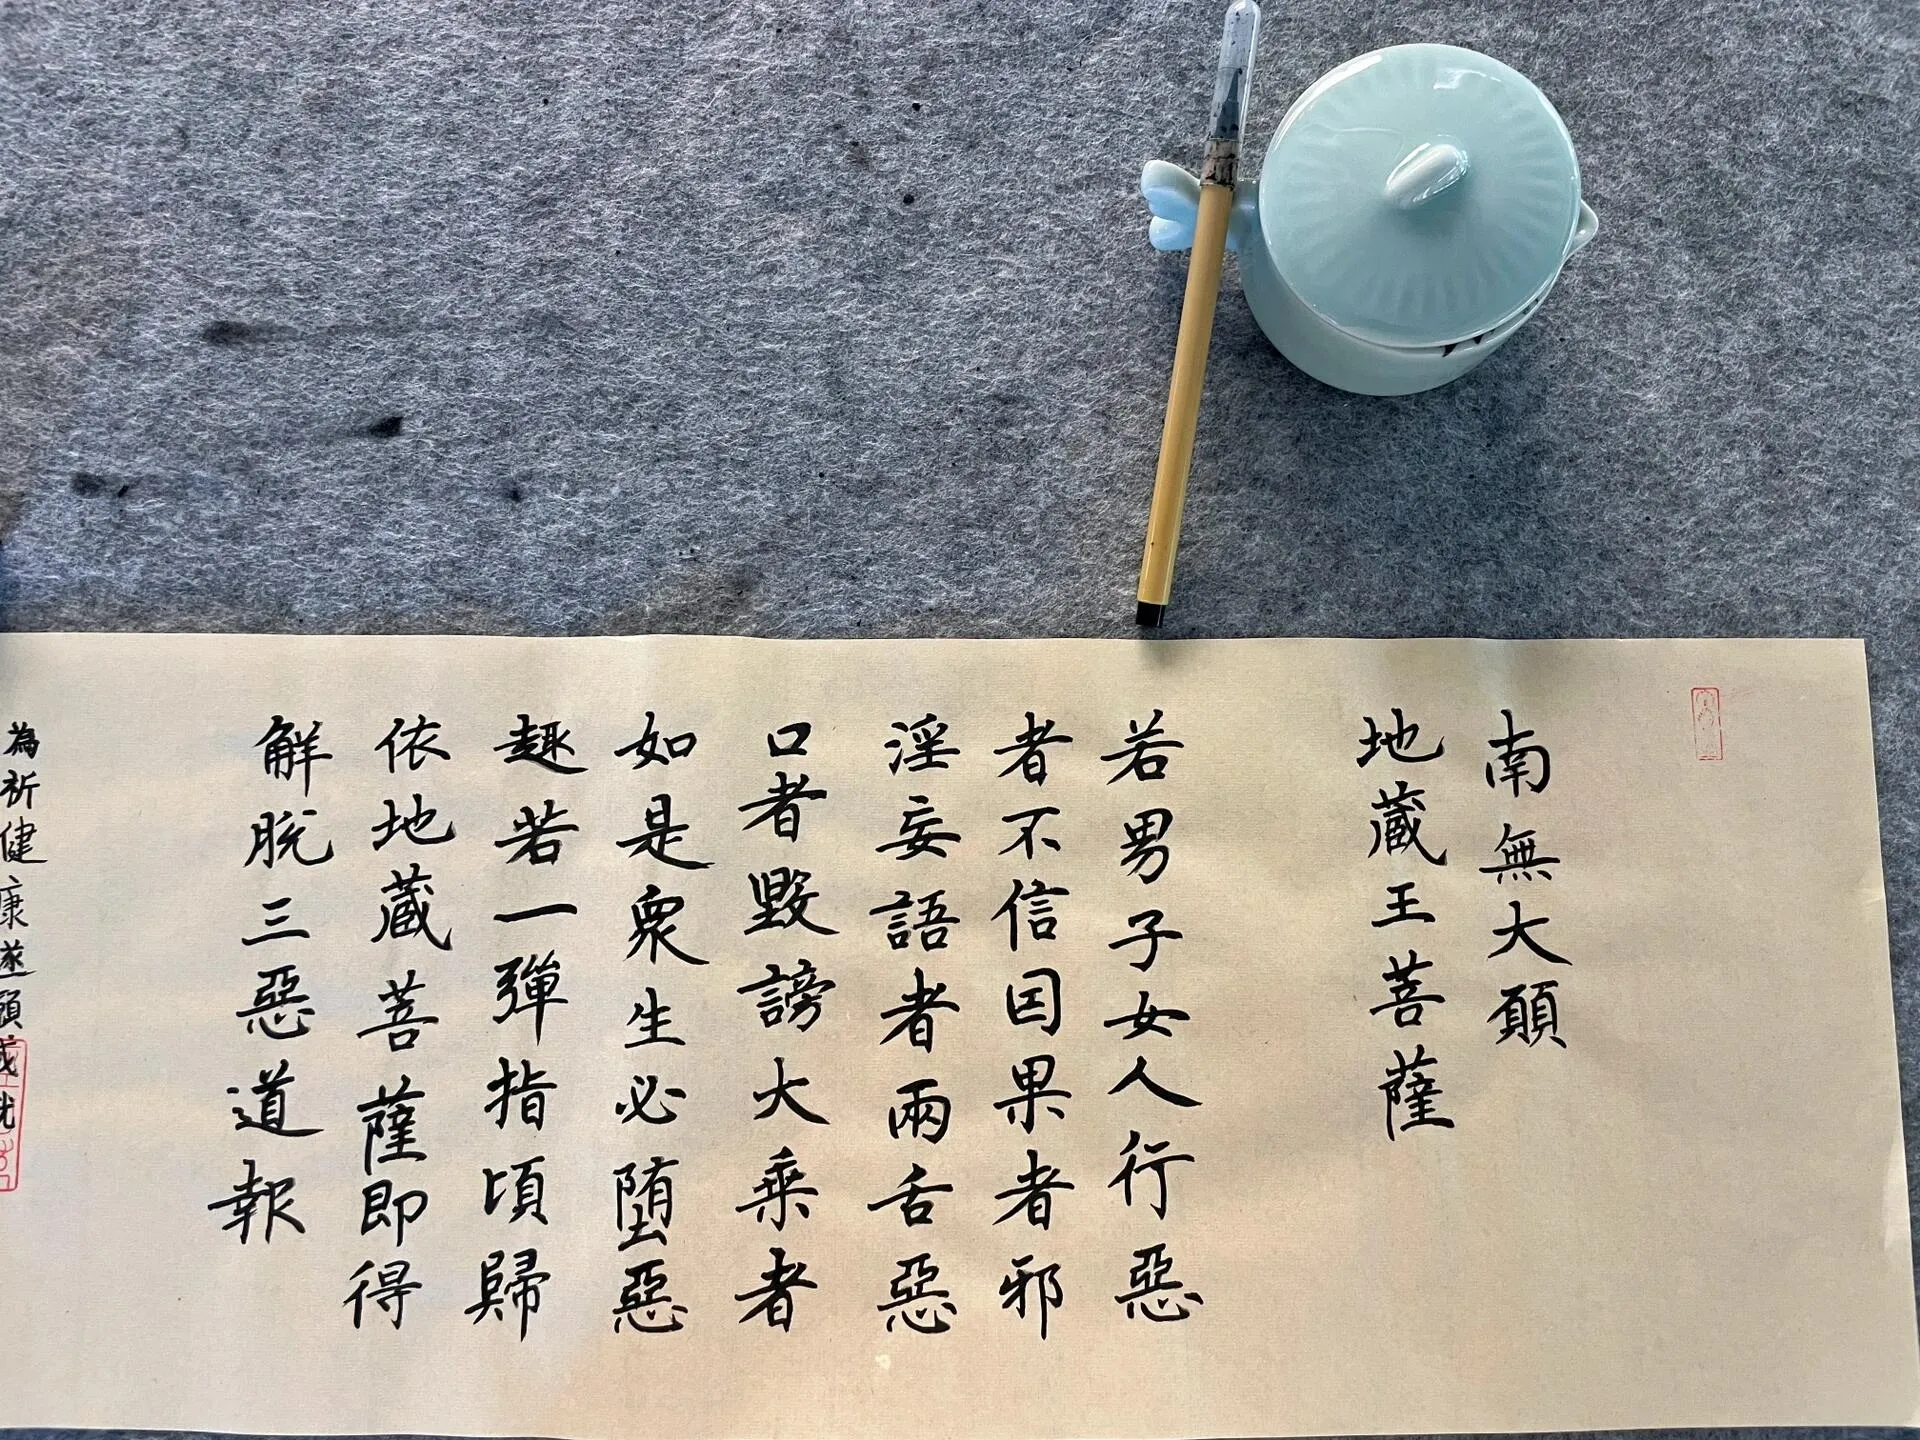 南無大願
地藏王菩薩
若男子女人行惡
者不信因果者邪
淫妄語者兩舌惡
口者毀謗大乘者
如是眾生必堕惡
趣若一彈指頃歸
依地藏菩薩即得
解脱三惡道報
為祈健康遂願